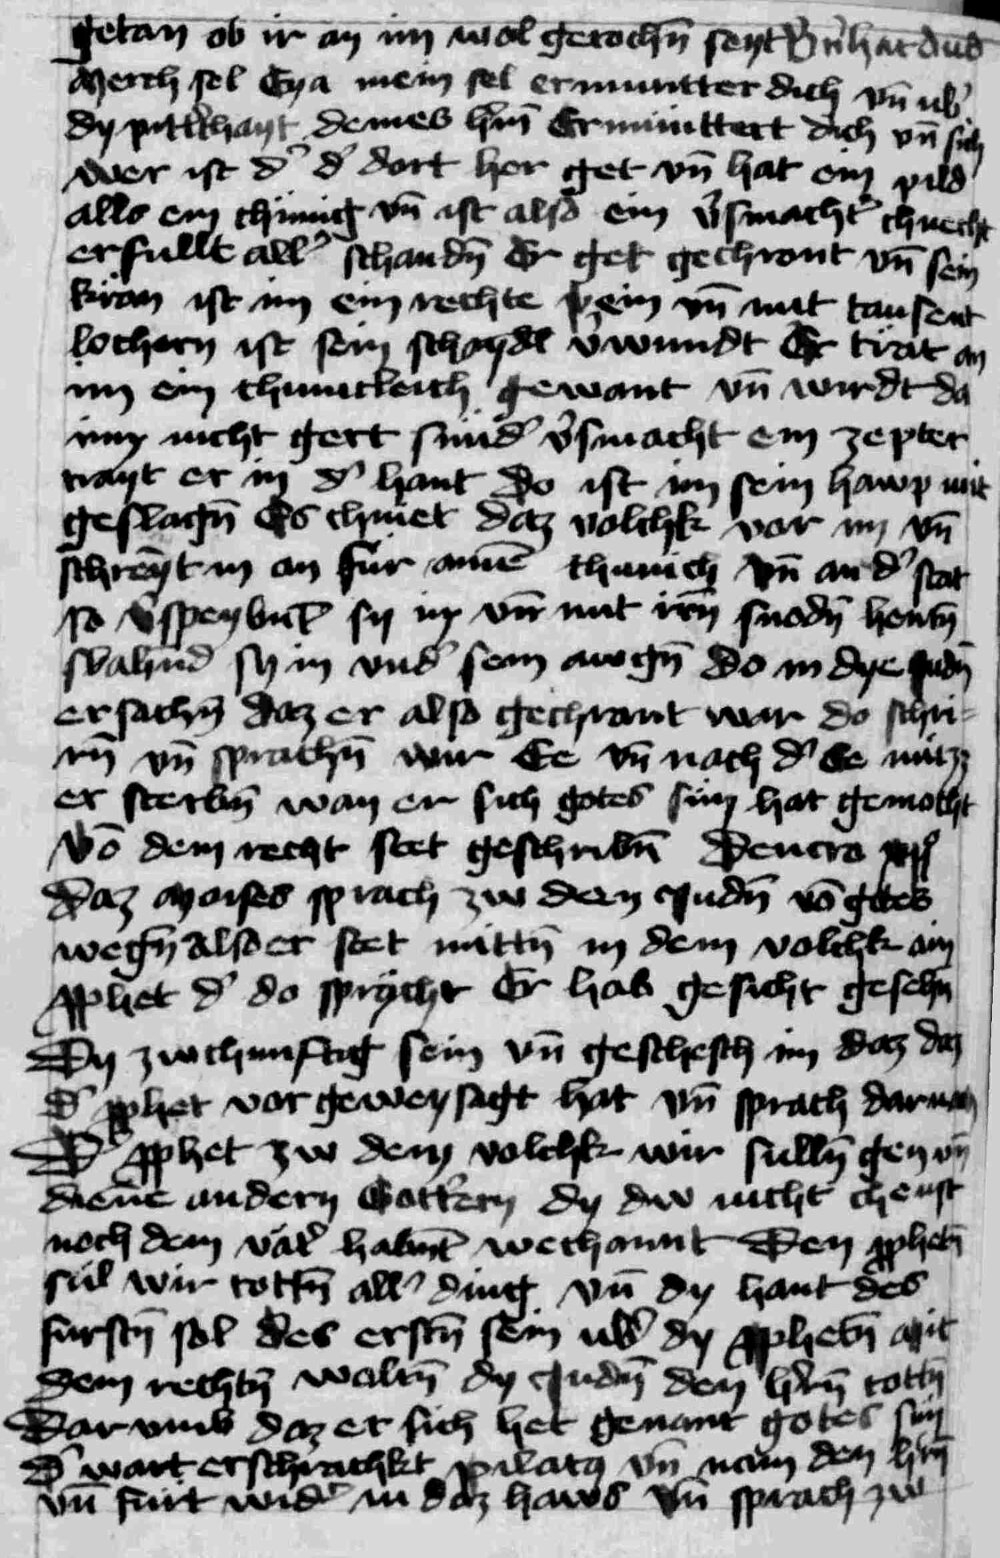 getan ob ir an im wol gerochn̄ seyt Bern̄hardus
Merch sel Eya mein sel ermuntter dich vn̄ ub̾
dy pitt̾chayt deines hr̄n̄ Ermunttert dich vn̄ sich
wer ist d̾ d̾ dort her get vn̄ hat ein pild
alls ein chunig vn̄ ist also ein v̾smacht̾ chnecht
erfullt all̾ schandn̄ Er get gechront vn̄ sein
kron ist im ein rechte pein vn̄ mit tausent
lochern ist sein schaydl v̾wundt Er trat an
im ein chunicleich gewant vn̄ wirdt da
mit nicht gert sund̾ v̾smacht ein zepter
trayt er in d̾ hant do ist im sein hawp mit
geslagn̄ Es chniet daz volchk vor im vn̄
schreyt in an fur ainē chunich vn̄ an d̾ stat
so v̾speybnt sy in vn̄ mit irn̄ snodn̄ hentn̄
sy in vnd̾ sein awgn̄ Do in dye Judn̄
ersachn̄ daz er also gechront war do schri=
rn̄ vn̄ sprachn̄ wir Ee vn̄ nach d̾ Ee muzz
er sterbn̄ wan er sich gotes sun hat gemacht
Vō dem recht stet geschribn̄
Daz Moises sprach zw den Judn̄ vō gotes
wegn̄ Also er stet mittn̄ in dem volchk ain
ꝓphet d̾ do spricht Er hab gesicht gesehn̄
Dy zwchunftig sein vn̄ geschech im daz daz
d̾ ꝓphet vor geweysagt hat vn̄ sprach darnach
D̾ ꝓphet zw dem volchk wir sulln̄ gen vn̄
dienē andern Gottern dy dw nicht chenst
noch dein vat̾ habnt wechannt Den ꝓphetn̄
sul wir tottn̄ all̾ ding vn̄ dy hant des
furstn̄ sol des erstn̄ sein ub̾ dy ꝓphetn̄ Mit
dem rechtn̄ woltn̄ dy Judn̄ den hr̄n̄ tottn̄
Dar vmb daz er sich het genant gotes sun
D̾ wart erschrachkt pilatꝰ vn̄ nam den hr̄n̄
vn̄ furt wid̾ in daz haws vn̄ sprach zw